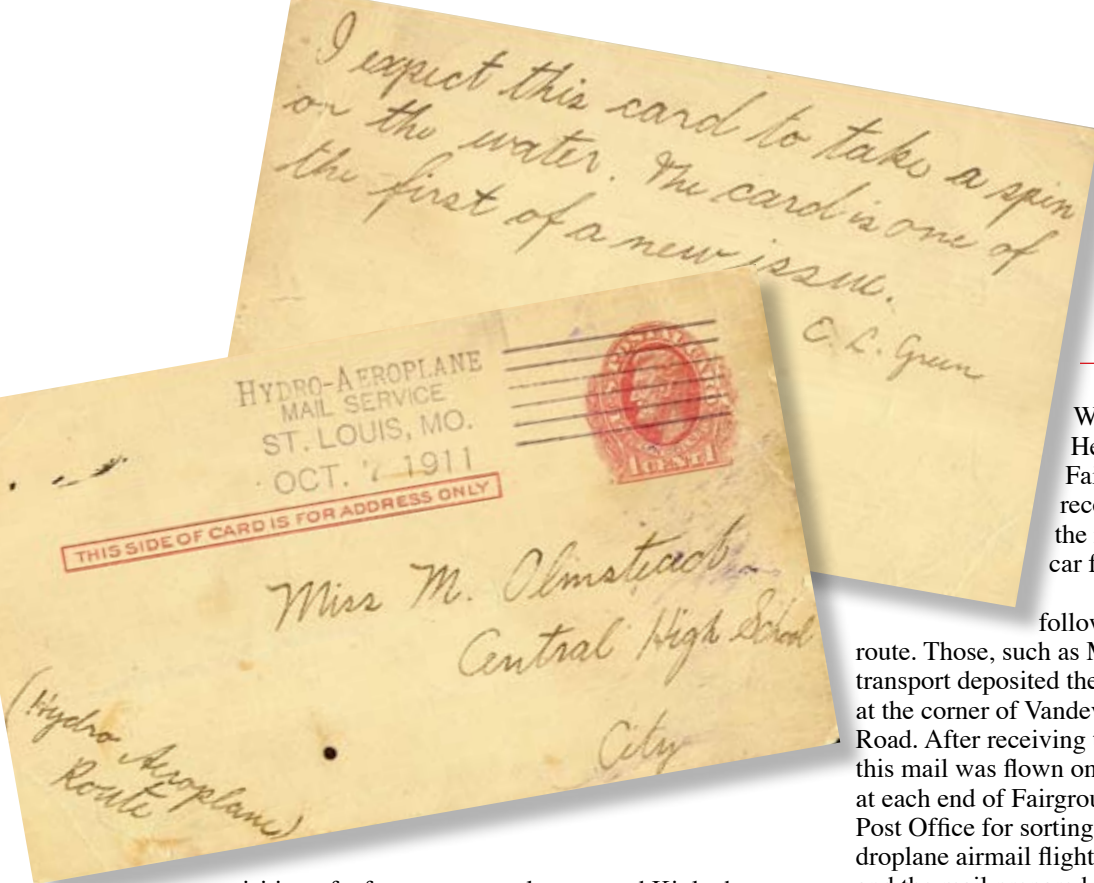 I expect this card to take a spin
on the water. The card is one of
the first of a new issue.
E. L. Green
HYDRO-AEROPLANE
MAIL SERVICE
ST. LOUIS, MO.
OCT. 7 1911
THIS SIDE OF CARD IS FOR ADDRESS ONLY
1 CENT 1
Miss M. Olmstead
Central High School
City
(Hydro Aeroplane
Route)
car f
follow
route. Those, such as M
transport deposited the
at the corner of Vandev
Road. After receiving
this mail was flown on
at each end of Fairgrou
Post Office for sorting
droplane airmail flight